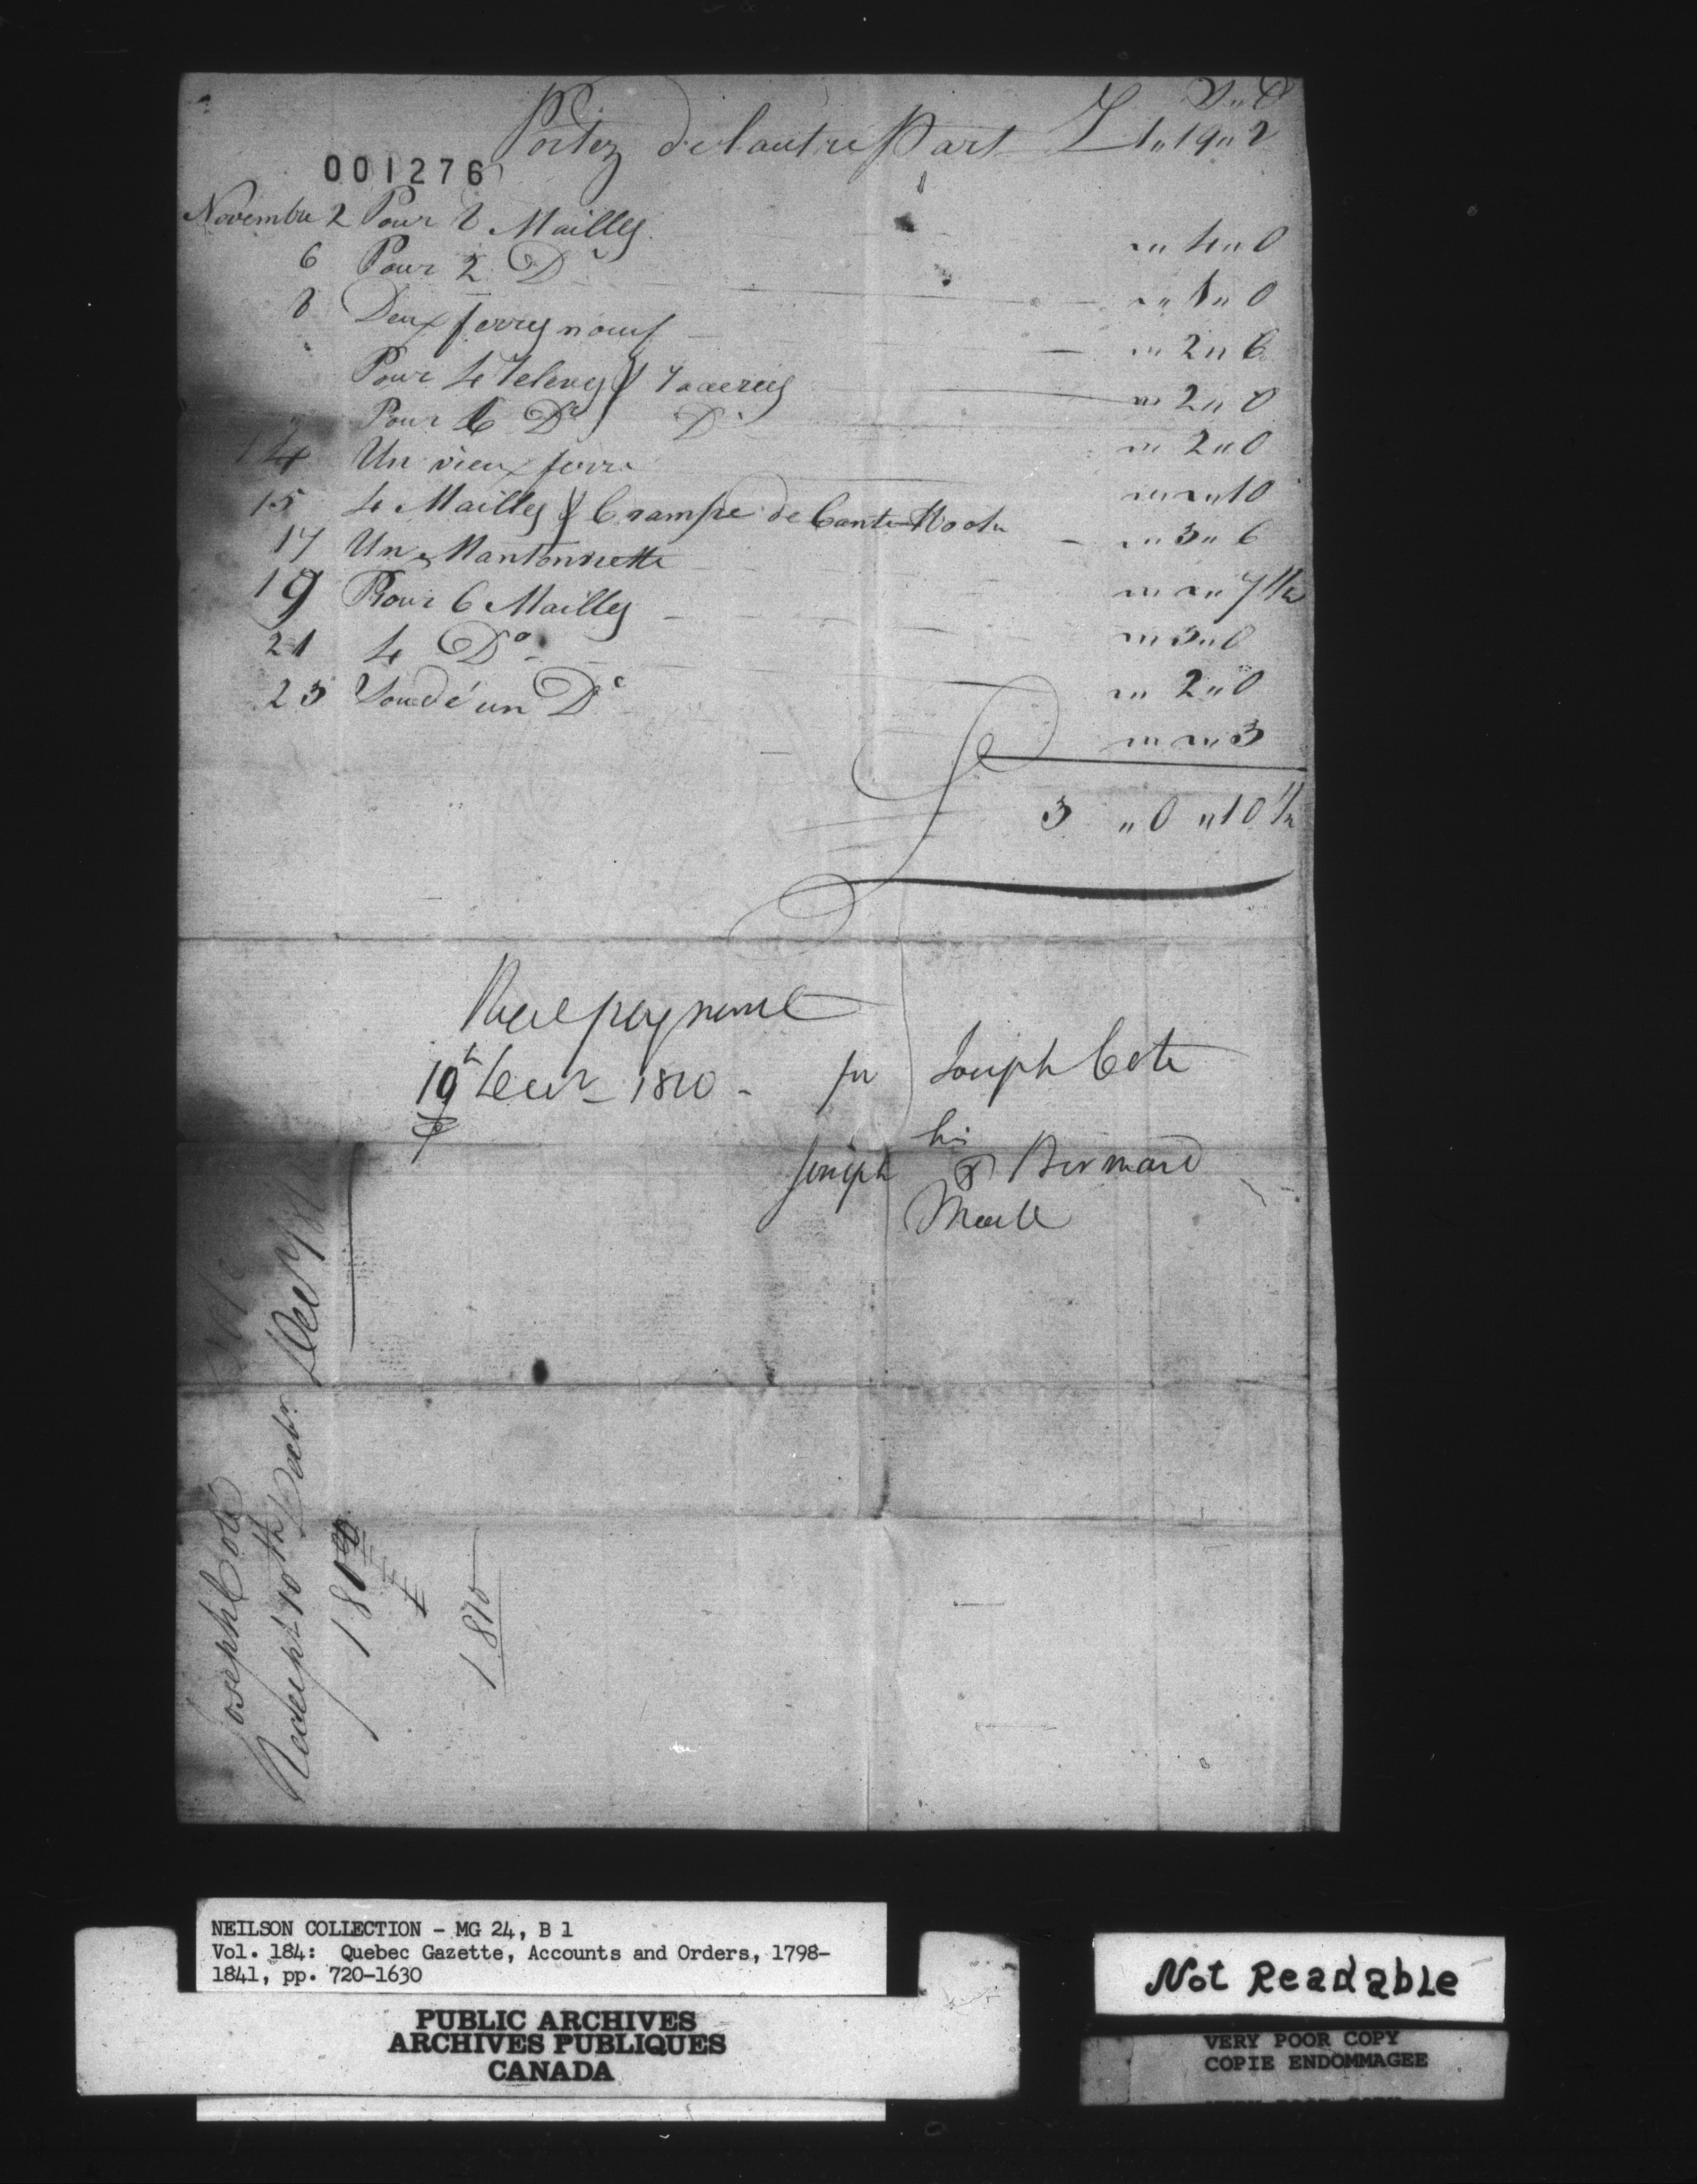 S " D
Portez de lautre Part £ 1 " 19 " 2
001276
Novembre 2 Pour 8 Mailles " 4 " 0
6 Pour 2 Do " 1 " 0
8 Deux ferres neuf " 2 " 6
Pour 4 releves & " 2 " 0
" Pour 6 Do Do " 2 " 0
14 Un vieux ferre " " 10
15 4 Mailles & Crampe de Cante Hooke " 3 " 6
17 Une Mantonnette " " 7 1/2
19 Pour 6 Mailles " 3 " 0
21 4 Do " 2 " 0
23 Soudé un Do " " 3
£ 3 " 0 " 10 1/2
Recd payment
10th Decr 1810 - for Joseph Cote
his
Joseph X Bernard
Mark
Joseph Coté
Receipt 10th Decbr
1810
1810
NEILSON COLLECTION - MG 24, B 1
Vol. 184: Quebec Gazette, Accounts and Orders, 1798-
1841, pp. 720-1630
PUBLIC ARCHIVES
ARCHIVES PUBLIQUES
CANADA
Not Readable
VERY POOR COPY
COPIE ENDOMMAGEE